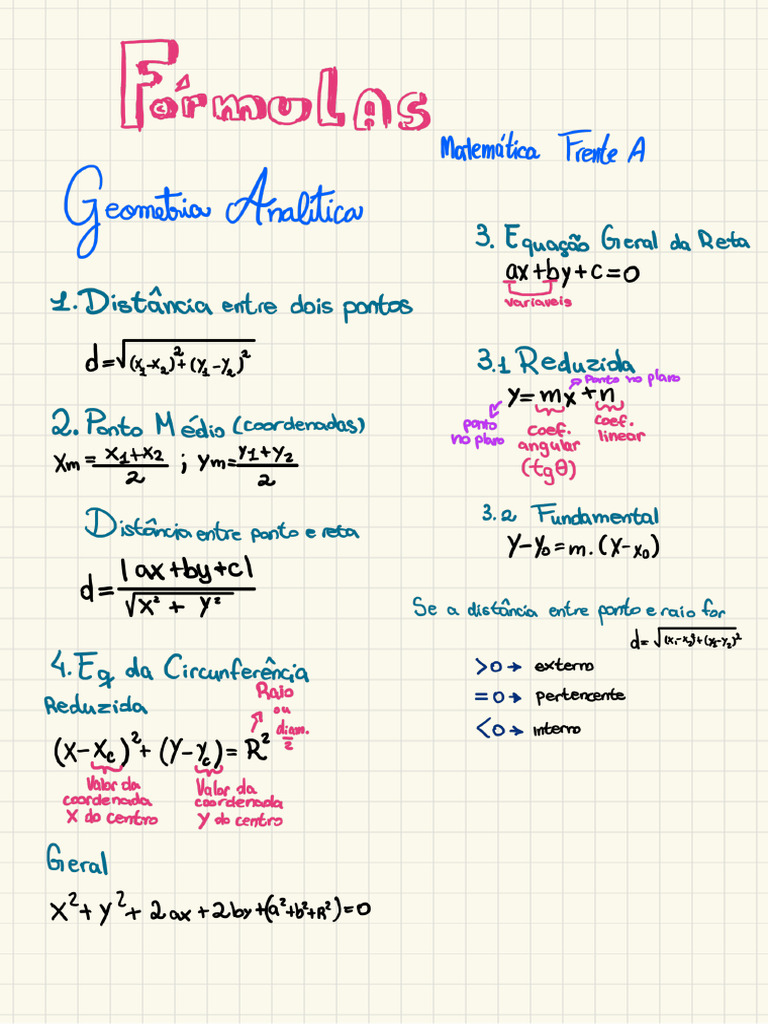 Fórmulas
Matemática Frente A
Geometria Analítica
1. Distância entre dois pontos
d=√(x₁-x₂)²+(y₁-y₂)²
2. Ponto Médio (coordenadas)
Xm = x₁+x₂/2 ; Ym = y₁+y₂/2
Distância entre ponto e reta
d= |ax+by+c|/√x² + y²
4. Eq da Circunferência
Reduzida
Raio
ou
diam.
2
(x-xc)²+(y-yc)=R²
Valor da
coordenada
X do centro
Valor da
coordenada
Y do centro
Geral
x²+y²+2ax+2by+(a²+b²+R²)=0
3. Equação Geral da Reta
ax+by+c=0
variaveis
3.1 Reduzida
Ponto no plano
y=mx+n
ponto
no plano
coef.
angular
(tgθ)
coef.
linear
3.2 Fundamental
y-y₀=m.(x-x₀)
Se a distância entre ponto e raio for
d=√(x₁-x₂)²+(y₁-y₂)²
>0→ externo
=0→ pertencente
<0→ interno